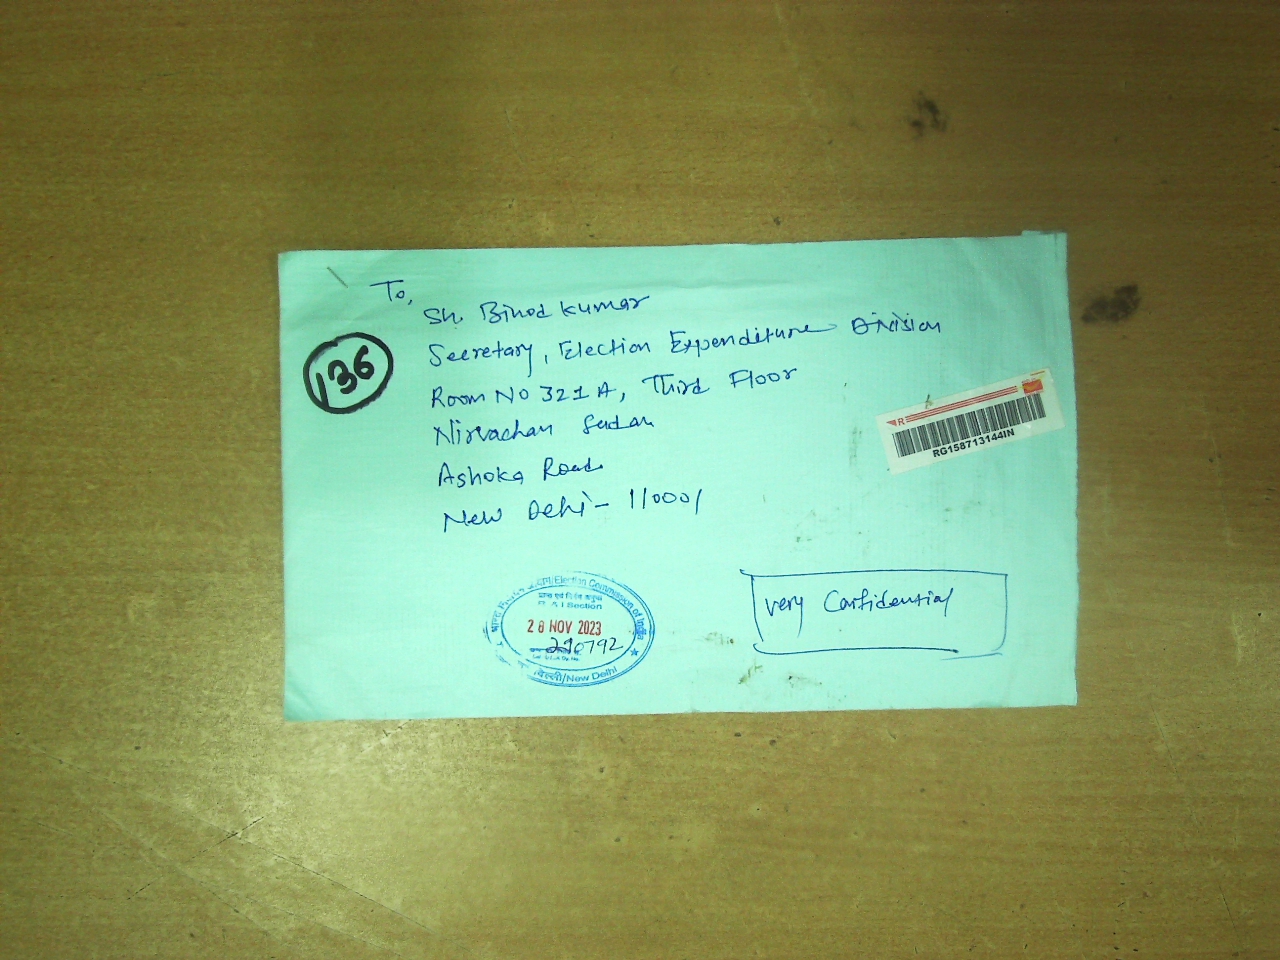 To,
Sh. Binod Kumar
Secretary, Election Expenditure Division
Room No 321 A, Third Floor
Nirvachan Sadan
Ashoka Road
New Delhi - 110001
136
R
RG158713144IN
Election Commission of India
R & I Section
28 NOV 2023
दिल्ली/New Delhi
Very Confidential